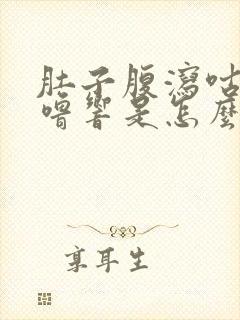 肚子腹瀉咕
嚕響是怎麼
享耳生